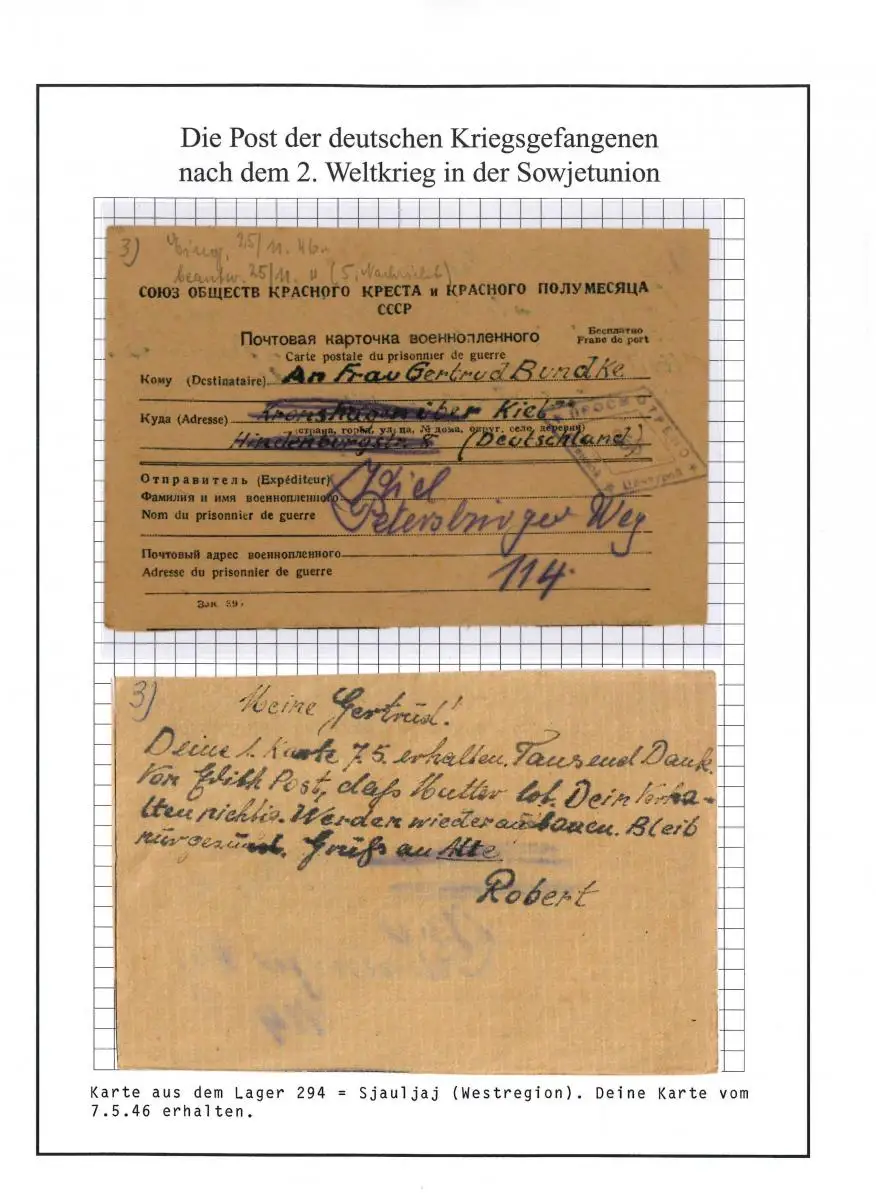 Die Post der deutschen Kriegsgefangenen
nach dem 2. Weltkrieg in der Sowjetunion
3) 25/11. 46.
beantw. 25/11. " (5. Nachricht)
СОЮЗ ОБЩЕСТВ КРАСНОГО КРЕСТА и КРАСНОГО ПОЛУМЕСЯЦА
СССР
Почтовая карточка военнопленного
Бесплатно
Franc de port
Carte postale du prisonnier de guerre
Кому (Destinataire) An Frau Gertrud Bundke
Куда (Adresse) Kronshagen über Kiel
страна, город, улица, № дома, округ, село, деревня)
Hindenburgstr. 8 (Deutschland)
ПРОСМОТРЕНО
Отправитель (Expéditeur)
Фамилия и имя военнопленного
Kiel
Nom du prisonnier de guerre
Petersburger Weg
Почтовый адрес военнопленного
Adresse du prisonnier de guerre
114.
Зак. 39
3)
Meine Gertrud!
Deine 1. Karte 7.5. erhalten. Tausend Dank.
Von Edith Post, daß Mutter tot. Dein Verha-
lten richtig. Werden wieder aufbauen. Bleib
nur gesund. Gruß an Alte
Robert
Karte aus dem Lager 294 = Sjauljaj (Westregion). Deine Karte vom
7.5.46 erhalten.